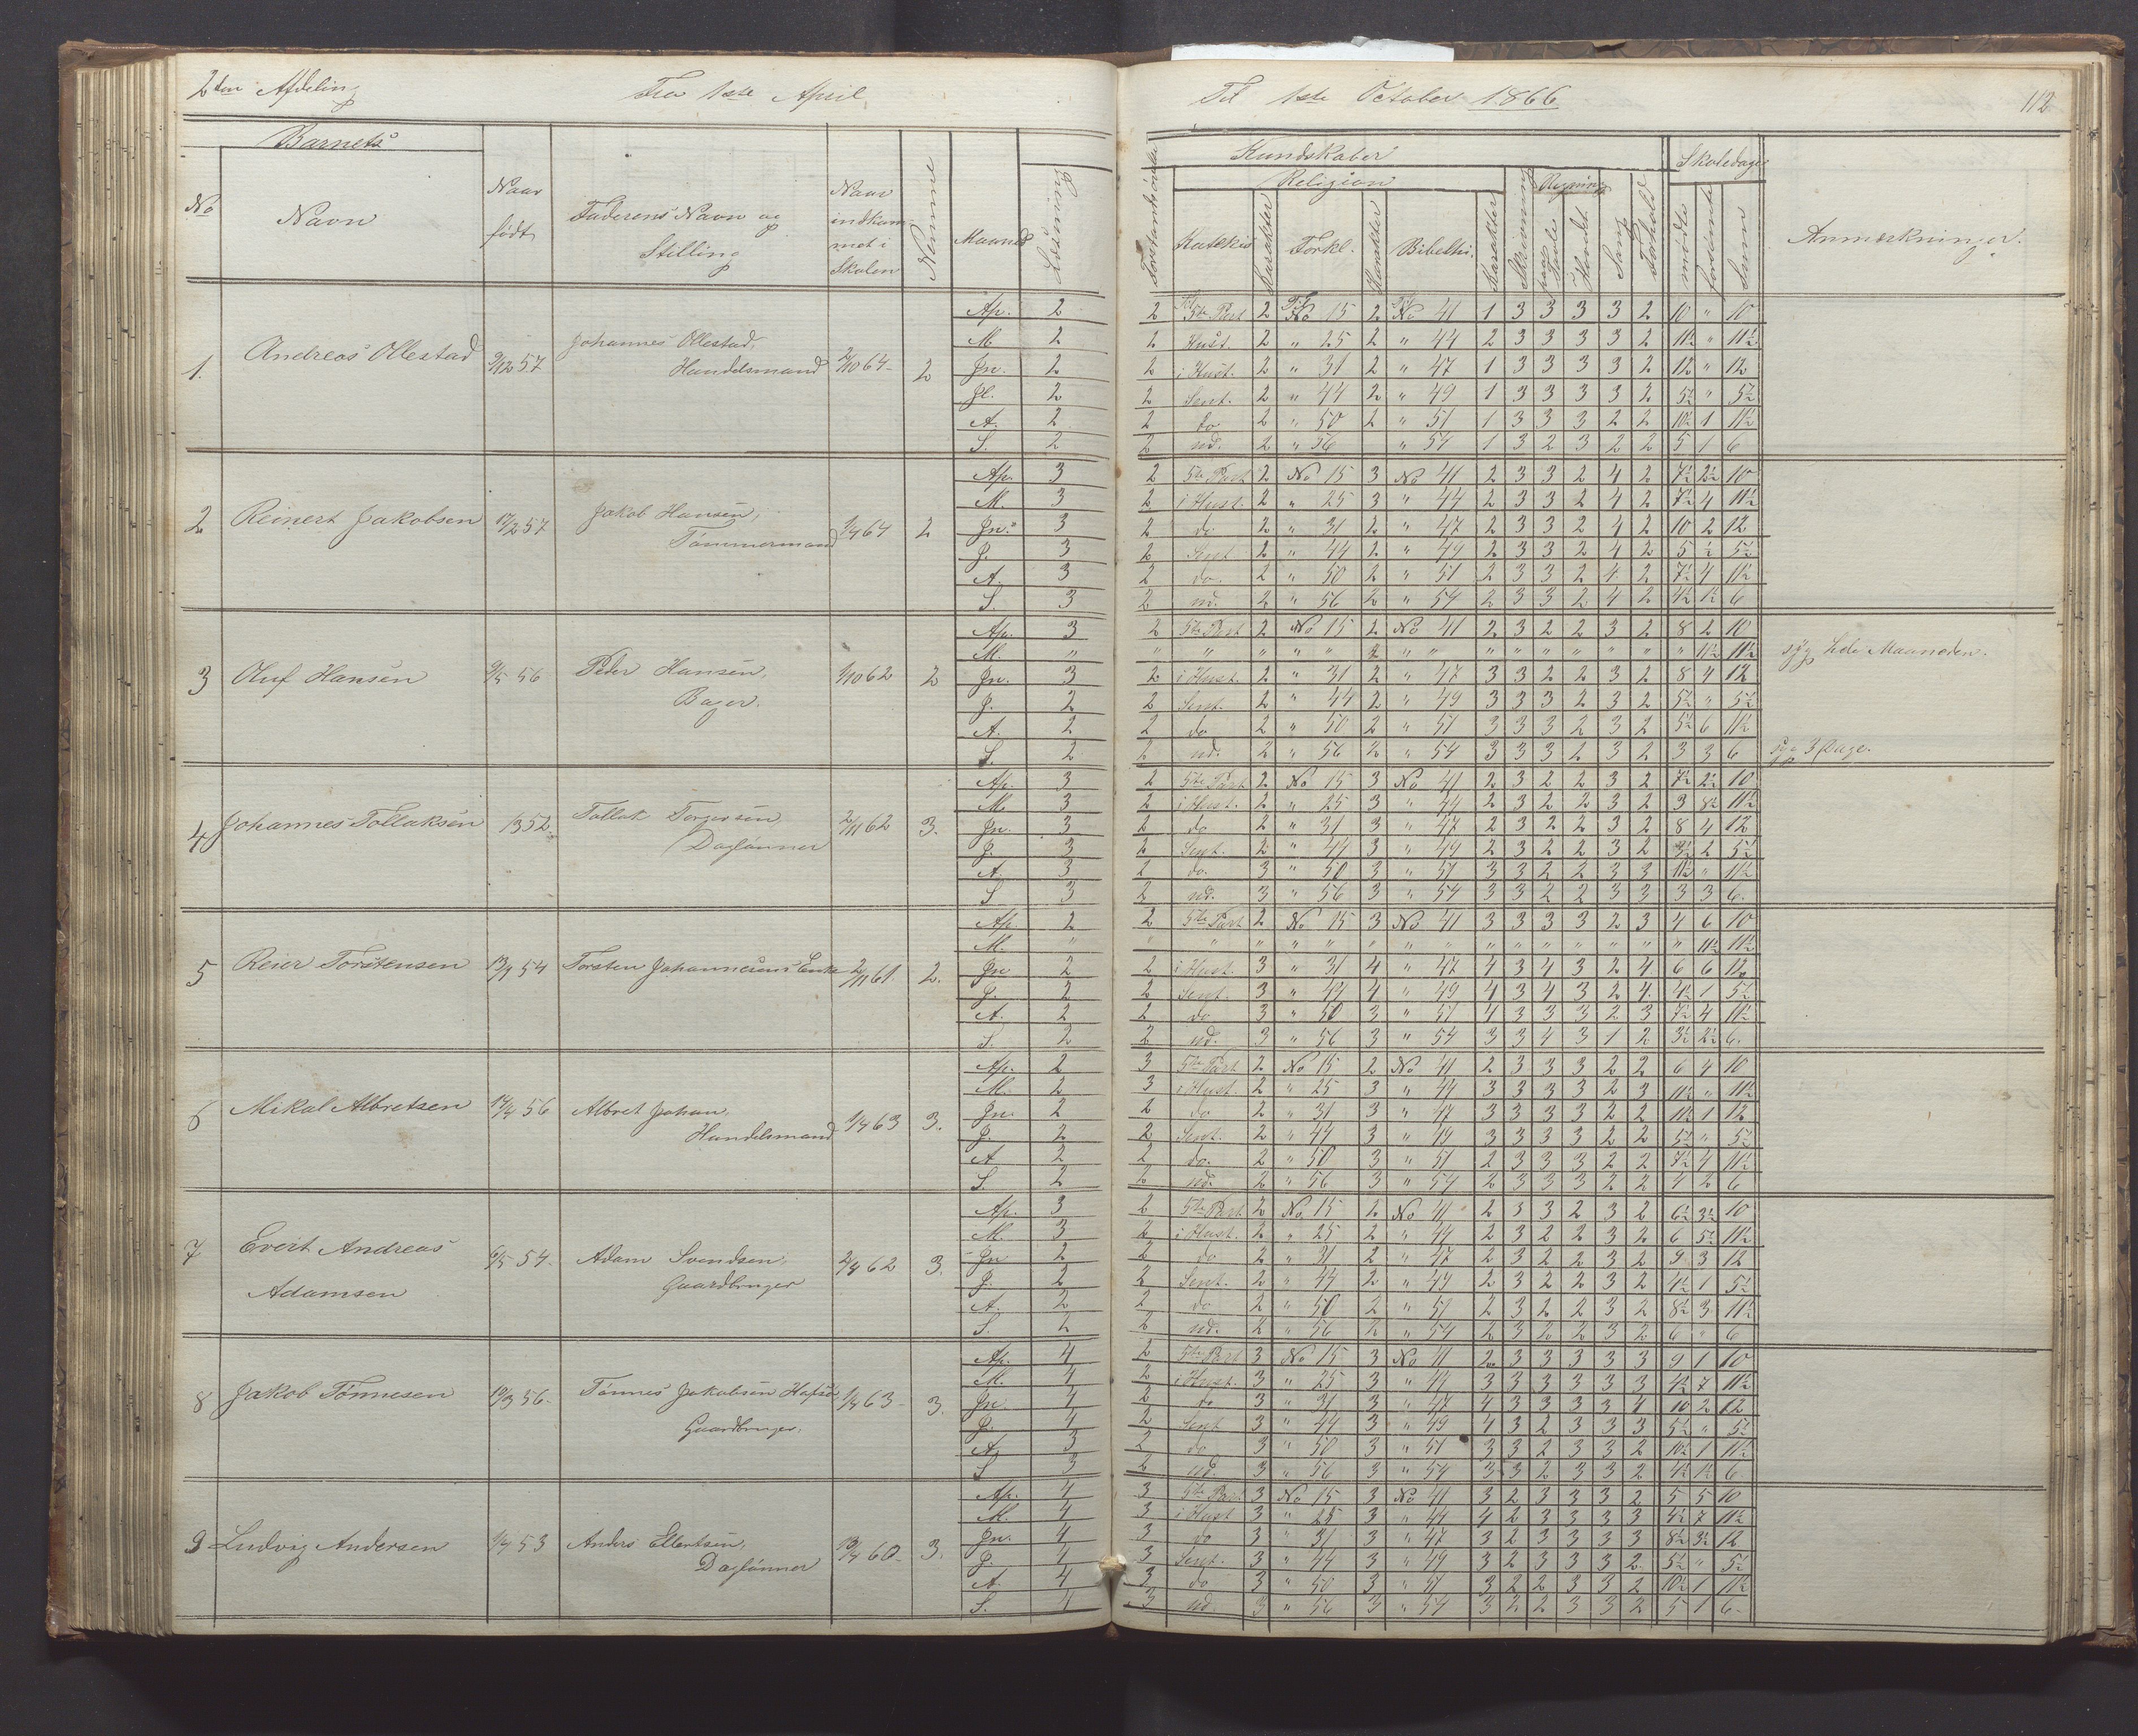 2den Afdeling
Fra 1ste April
Til 1ste October 1866
112
Barnets
No
Navn
Naar født
Faderens Navn og Stilling
Naar indkommet i Skolen
Nemme
Maaned
Læsning
Forstandsøvelse
Kundskaber
Religion
Katekis
Karakter
Forkl.
Karakter
Bibelhi.
Karakter
Skrivning
Regning
paa Tavle
i Hovdet
Sang
Forhold
Skoledage
mødte
forsømte
Sum
Anmærkninger.
1. Andreas Ollestad 9/12 57 Johannes Ollestad, Handelsmand 2/10 64 2
Ap. 2 2 5te Part 2 Til No 15 2 No 41 1 3 3 3 3 2 10 " 10
M 2 2 i Hust. 2 " 25 2 " 44 2 3 3 3 3 2 11½ " 11½
Jn. 2 2 i Hust. 2 " 31 2 " 47 1 3 3 3 3 2 12 " 12
Jl. 2 2 Sent. 2 " 44 2 " 49 1 3 3 3 3 2 5½ " 5½
A. 2 2 do 2 " 50 2 " 51 1 3 3 3 2 2 10½ 1 11½
S. 2 2 ud. 2 " 56 " 54 1 3 2 3 2 2 5 1 6
2 Reinert Jakobsen 17/2 57 Jakob Hansen, Tømmermand 1/4 64 2
Ap. 3 2 5te Part 2 No 15 3 No 41 2 3 3 2 4 2 7½ 2½ 10
M. 3 2 i Hust. 2 " 25 3 " 44 2 3 3 2 4 2 7½ 4 11½
Jn. 3 2 do. 2 " 31 2 " 47 2 3 3 2 4 2 10 2 12
J. 3 2 Sent 2 " 44 2 " 49 2 3 3 2 4 2 5 ½ 5½
A. 3 2 do. 2 " 50 2 " 51 2 3 3 2 4 2 7½ 4 11½
S. 3 2 ud. 2 " 56 2 " 54 2 3 3 2 4 2 4½ 1½ 6
3 Oluf Hansen 9/5 56 Peder Hansen, Bager. 1/10 62 2
Ap. 3 2 5te Part 2 No 15 2 No 41 2 3 2 2 3 2 8 2 10
M. " " " " " " 2 " " " " " " " " " 11½ 11½ syg hele Maaneden.
Jn. 3 2 i Hust. 2 " 31 2 " 47 3 3 2 2 3 2 8 4 12
J. 2 2 Sent. 2 " 44 2 " 49 3 3 3 2 3 2 5½ " 5½
A. 2 2 do 2 " 50 2 " 51 3 3 3 2 3 2 5½ 6 11½
S. 2 2 ud. 2 " 56 2 " 54 3 3 3 2 3 2 3 3 6 syg 3 Dage.
4 Johannes Tollaksen 1352. Tollak Torgersen Daglønner 2/11 62 3.
Ap. 3 2 5te Part 2 No 15 3 No 41 2 3 2 2 3 2 7½ 2½ 10
M. 3 2 i Hust. 2 " 25 3 " 44 2 3 2 2 3 2 3 8½ 11½
Jn. 3 2 do 2 " 31 3 " 47 2 3 2 2 3 2 8 4 12
J. 3 2 Sent. 2 " 44 3 " 49 2 3 2 2 3 2 3½ 2 5½
A. 3 2 do. 3 " 50 3 " 51 3 3 2 2 3 3 11½ " 11½
S 3 2 ud. 3 " 56 3 " 54 3 3 2 2 3 3 3 3 6.
5 Reier Torstensen 13/9 54 Torsten Johannesens Enke 2/11 61. 2.
Ap. 2 2 5te Part 2 No 15 3 No 41 3 3 3 3 2 3 4 6 10
M. " " " " " " " " " " " " " " " " 11½ 11½
Jn 2 2 i Hust. 3 " 31 4 " 47 4 3 4 3 2 4 6 6 12
J. 2 2 Sent. 3 " 44 4 " 49 4 3 4 3 2 4 4½ 1 5½
A. 2 2 do 3 " 50 3 " 51 4 3 3 3 2 3 7½ 4 11½
S. 2 2 ud. 3 " 56 3 " 54 3 3 4 3 1 2 3½ 2½ 6.
6 Mikal Albretsen 14/4 56 Albret Johan, Handelsmand 1/4 63 3.
Ap. 2 3 5te Part 2 No 15 2 No 41 2 3 3 3 2 2 6 4 10
M. 2 3 i Hust. 2 " 25 3 " 44 3 3 3 3 2 3 11½ " 11½
Jn. 2 2 do 2 " 31 3 " 47 3 3 3 3 2 2 11 1 12
J. 2 2 Sent. 2 " 44 3 " 49 3 3 3 3 2 2 5½ " 5½
A 2 2 do. 2 " 50 3 " 51 2 3 3 3 2 2 7½ 4 11½
S. 2 2 ud. 2 " 56 3 " 54 2 3 3 3 2 2 4 2 6
7 Evert Andreas Adamsen 6/5 54. Adam Svendsen, Gaardbruger 2/4 62 3.
Ap. 3 2 5te Part 2 No 15 2 No 41 2 3 3 2 3 2 6½ 3½ 10
M. 3 2 i Hust. 2 " 25 2 " 44 2 3 2 2 3 2 6 5½ 11½
Jn 2 2 do 2 " 31 2 " 47 2 3 2 2 3 2 9 3 12
J. 2 2 Sent. 2 " 44 2 " 49 2 3 2 2 3 2 4½ 1 5½
A. 2 2 do 2 " 50 2 " 51 2 3 2 2 3 2 8½ 3 11½
S. 2 2 ud. 2 " 56 2 " 54 2 3 2 2 3 2 6 " 6
8 Jakob Tønnesen 10/3 56. Tønnes Jakobsen Gaardbruger. 1/4 63 3.
Ap. 4 2 5te Part 3 No 15 3 No 41 2 3 3 3 3 3 9 1 10
M. 4 2 i Hust. 3 " 25 3 " 44 3 3 3 3 3 3 4½ 7 11½
Jn. 4 2 do 3 " 31 3 " 47 4 3 3 3 3 4 10 2 12
J. 4 2 Sent 3 " 44 3 " 49 4 3 2 3 3 3 5½ " 5½
A. 3 2 do 3 " 50 3 " 51 3 3 2 3 3 2 10½ 1 11½
S 3 2 ud. 3 " 56 3 " 54 3 3 2 3 3 2 4½ 1½ 6
9 Ludvig Andersen 1/4 53 Anders Ellertsen, Daglønner 19/4 60. 3.
Ap. 4 3 5te Part 3 No 15 3 No 41 3 2 3 3 3 2 5 5 10
M. 4 3 i Hust 3 " 25 3 " 44 4 2 3 3 3 3 4½ 7 11½
Jn. 4 3 do 3 " 31 3 " 47 3 2 3 3 3 3 8½ 3½ 12
J. 4 3 Sent. 3 " 44 3 " 49 3 2 3 3 3 2 5½ " 5½
A. 4 3 do 3 " 50 3 " 51 3 2 2 3 3 2 10½ 1 11½
S. 4 3 ud. 3 " 56 3 " 54 3 2 2 3 3 2 5 1 6